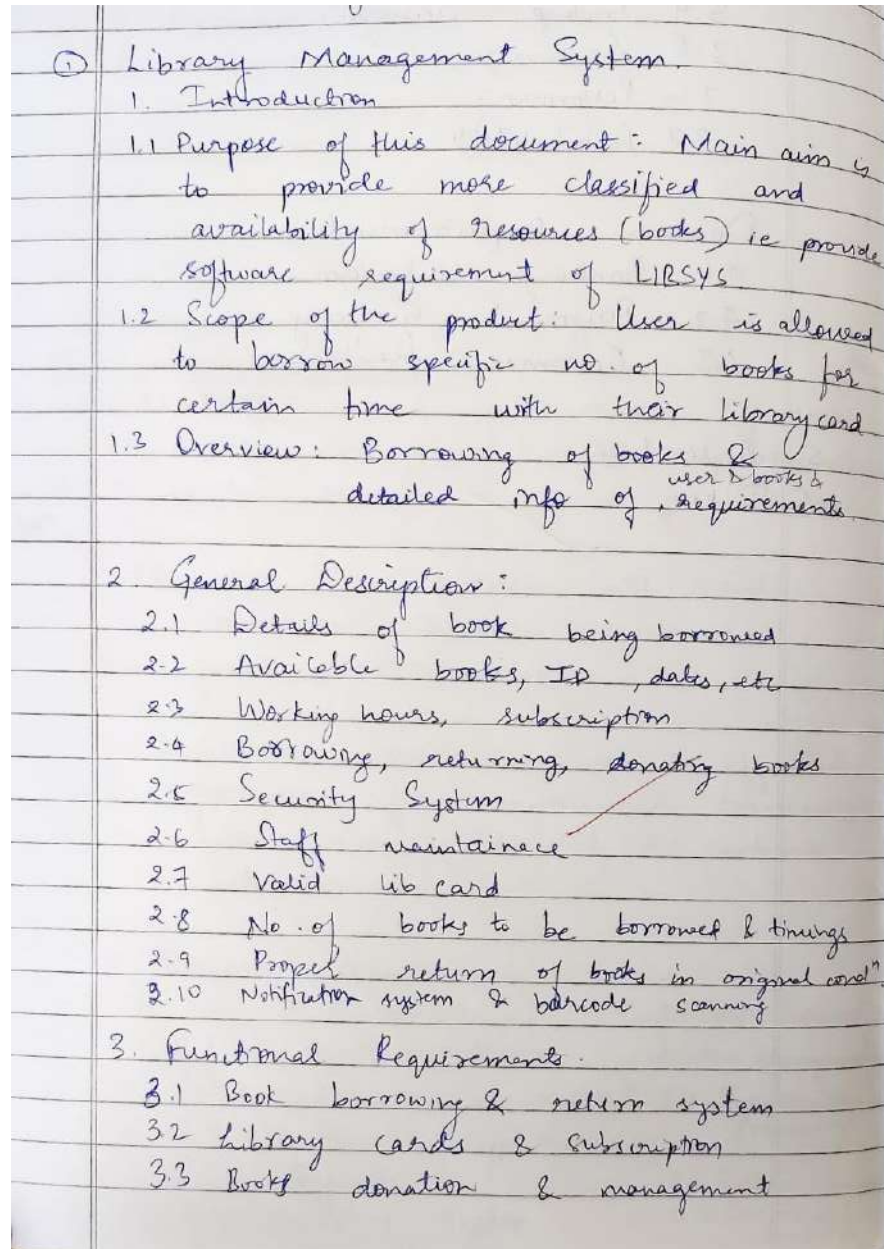 ① Library Management System.
1. Introduction
1.1 Purpose of this document : Main aim is
to provide more classified and
availability of resources (books) ie provide
software requirement of LIBSYS
1.2 Scope of the product : User is allowed
to borrow specific no. of books for
certain time with their library card
1.3 Overview : Borrowing of books &
user & books &
detailed info of , requirements.
2. General Description :
2.1 Details of book being borrowed
2.2 Available books, ID , dates, etc
2.3 Working hours, subscription
2.4 Borrowing, returning, donating books
2.5 Security System
2.6 Staff maintainace
2.7 Valid lib card
2.8 No. of books to be borrowed & timings
2.9 Proper return of books in original condⁿ.
2.10 Notification system & barcode scanning
3. Functional Requirements.
3.1 Book borrowing & return system
3.2 Library cards & subscription
3.3 Books donation & management